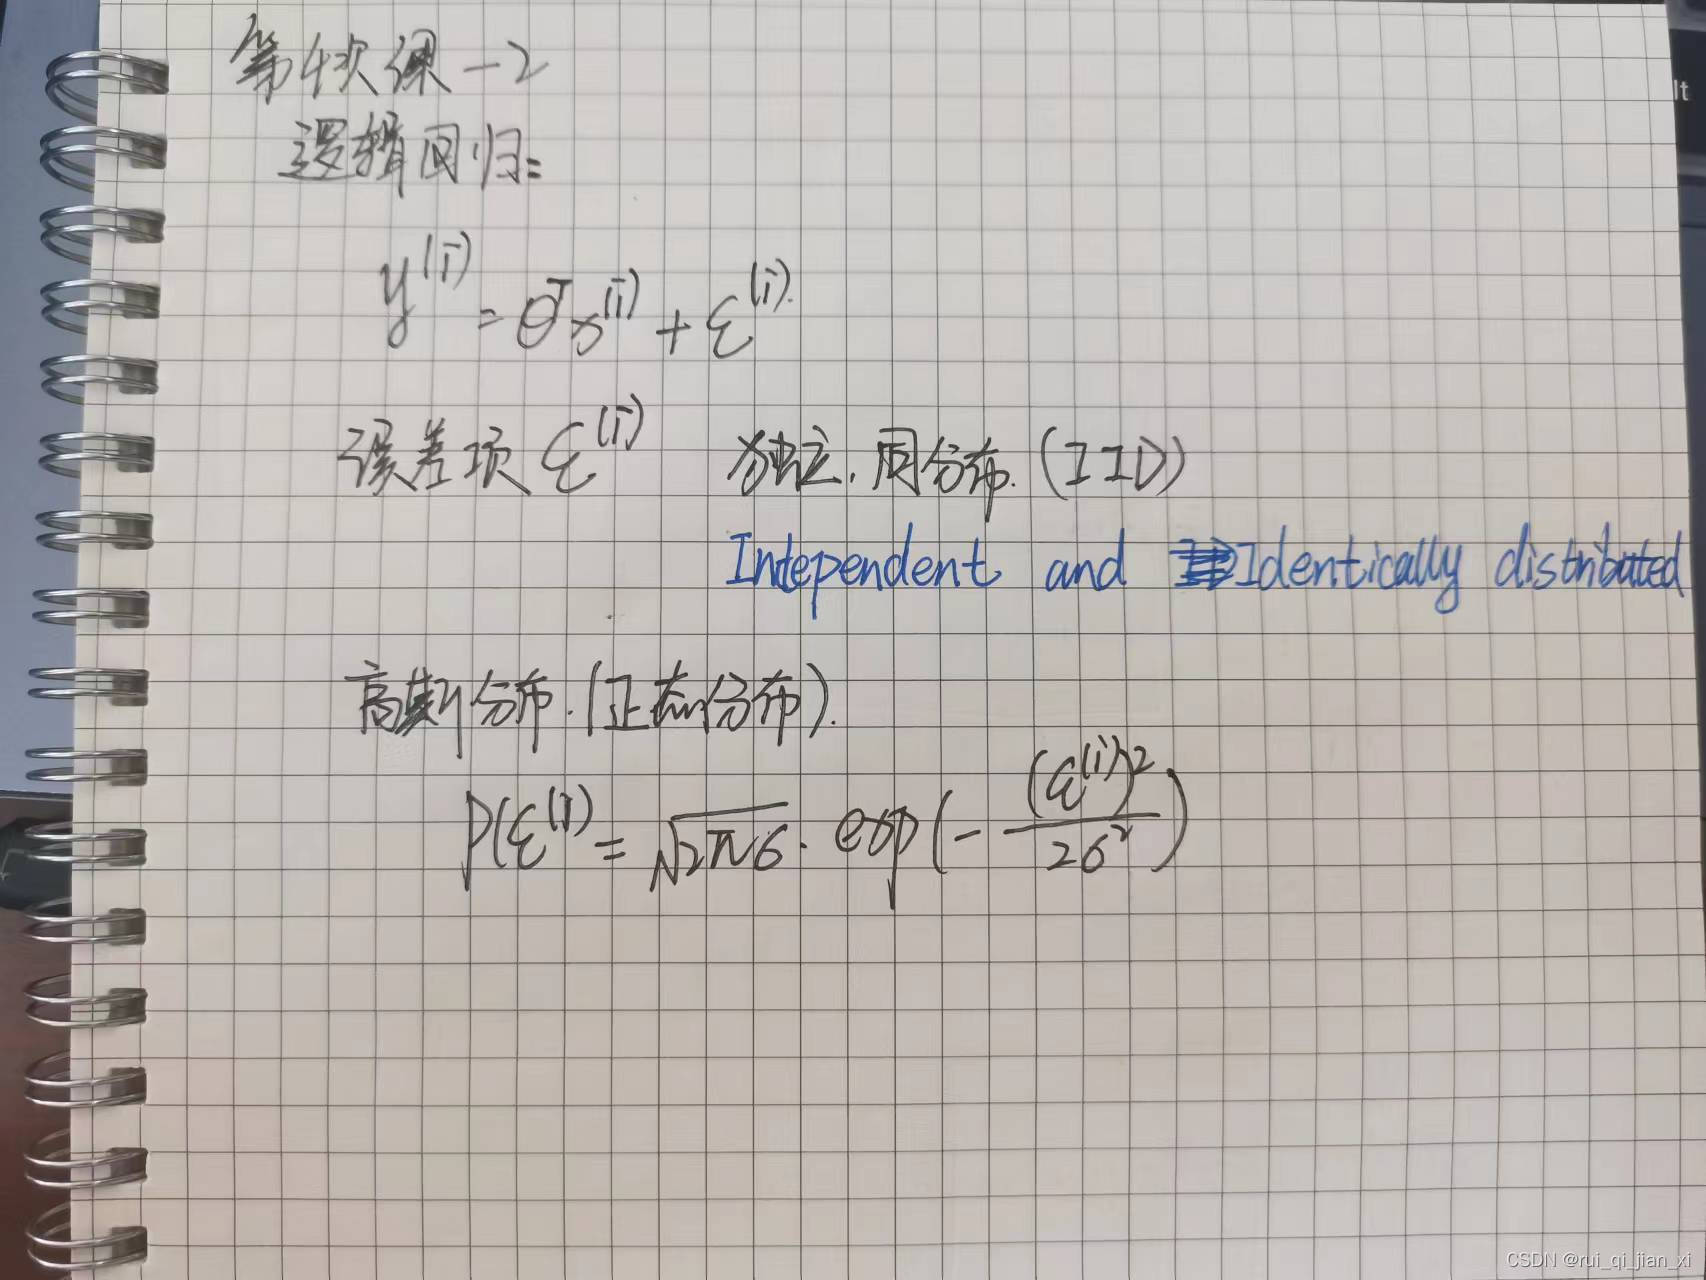 第4次课-2
逻辑回归:
y^(i) = θ^T x^(i) + ε^(i).
误差项 ε^(i) 独立.同分布.(IID)
Intependent and Identically distributed
高斯分布.(正态分布).
P(ε^(i)) = √2πσ · exp(-(ε^(i))^2/2σ^2)
lt
CSDN @rui_qi_jian_xi